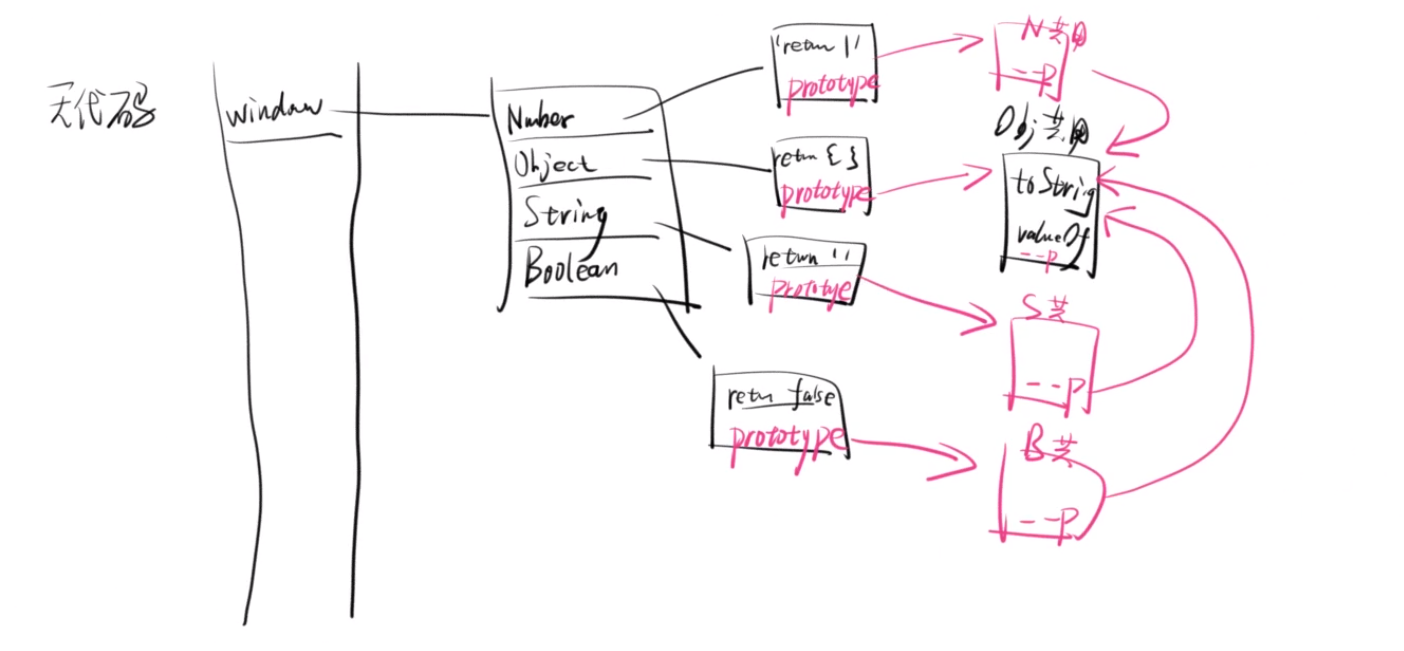 无代码
window
Number
Object
String
Boolean
'retun 1'
prototype
retun { }
prototype
return ' '
prototye
retn false
prototype
N共用
--P
Obj共用
toString
valueOf
--P
S共
--P
B共
--P